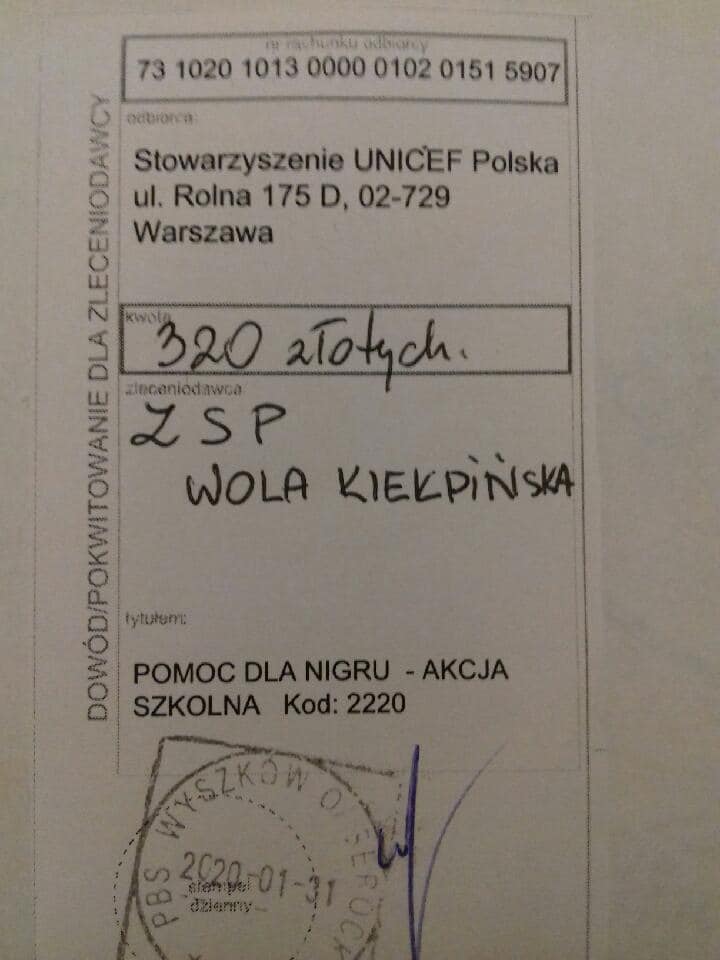 DOWÓD/POKWITOWANIE DLA ZLECENIODAWCY
nr rachunku odbiorcy
73 1020 1013 0000 0102 0151 5907
odbiorca:
Stowarzyszenie UNICEF Polska
ul. Rolna 175 D, 02-729
Warszawa
kwota
320 złotych.
zleceniodawca
ZSP
WOLA KIEŁPIŃSKA
tytułem:
POMOC DLA NIGRU - AKCJA
SZKOLNA Kod: 2220
PBS WYSZKÓW O/SEROCK
2020-01-31
stempel
dzienny